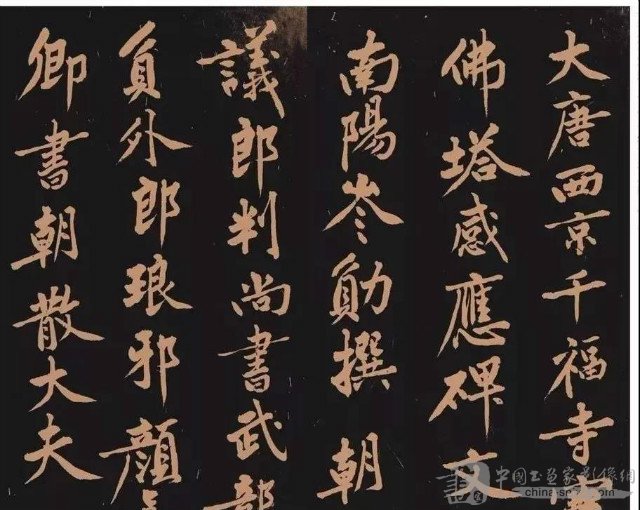 大唐西京千福寺
佛塔感應碑文
南陽岑勛撰 朝
議郎判尚書武部
員外郎琅邪顏
卿書朝散大夫
中國书画家影像網